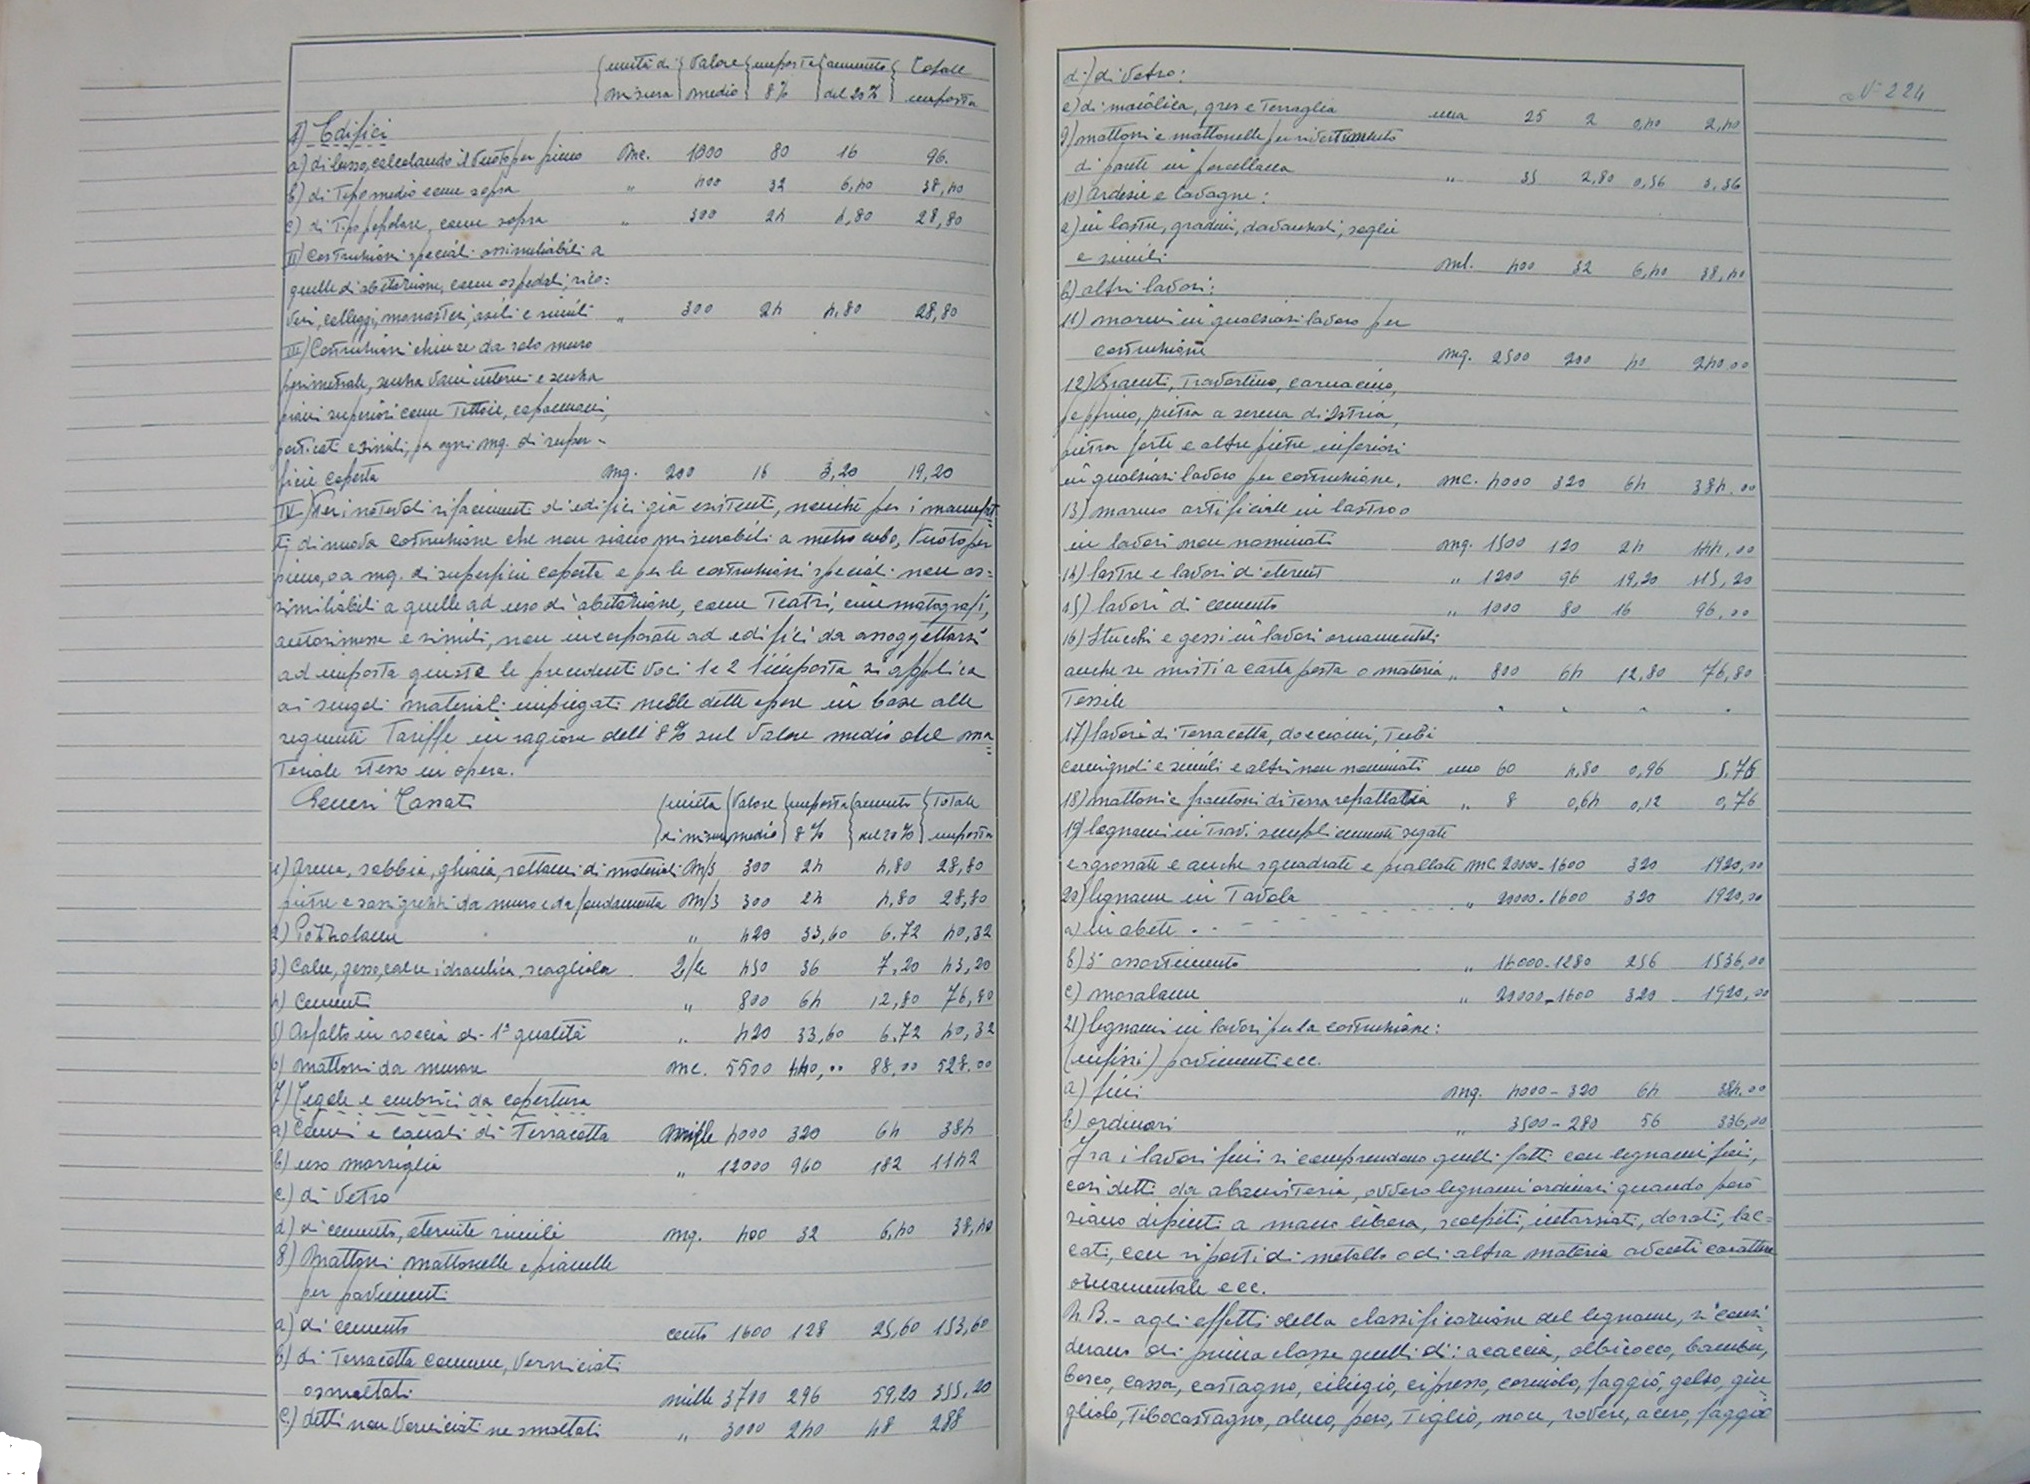 unità di misura Valore medio imposta 8% aumento del 20% Totale imposta
I) Edifici
a) di lusso, calcolando il vuoto per pieno mc. 1000 80 16 96.
b) di Tipo medio come sopra " 400 32 6,40 38,40
c) di Tipo popolare, come sopra " 300 24 4,80 28,80
II) Costruzioni speciali assimilabili a
quelle di abitazione, come ospedali, rico:
veri, collegi, monasteri, asili e simili " 300 24 4,80 28,80
III) Costruzioni chiuse da solo muro
perimetrale, senza vani interni e senza
piani superiori come Tettoie, capannoni,
porticati e simili, per ogni mq. di super-
ficie coperta mq. 200 16 3,20 19,20
IV) Per i notevoli rifacimenti di edifici già esistenti, nonchè per i manufat
ti di nuova costruzione che non siano misurabili a metro cubo, Vuoto per
pieno, o a mq. di superficie coperta e per le costruzioni speciali non as=
similiabili a quelle ad uso di abitazione, come Teatri, cinematografi,
autorimesse e simili, non incorporate ad edifici da assoggettarsi
ad imposta giuste le precedenti voci 1 e 2 l'imposta si applica
ai singoli materiali impiegati nelle dette opere in base alle
seguenti Tariffe in ragione dell'8% sul Valore medio del ma
=
Teriale stesso in opera.
Generi Tassati unità di misura Valore medio imposta 8% aumento del 20% Totale imposta
1) Arena, sabbia, ghiaia, rottami di materiali M/3 300 24 4,80 28,80
pietre e sassi grezzi da muro e da fondamenta M/3 300 24 4,80 28,80
2) Pozzolana " 420 33,60 6.72 40,32
3) Calce, gesso, calce idraulica, scagliola Q/le 450 36 7,20 43,20
4) Cementi " 800 64 12,80 76,80
5) Asfalto in roccia di 1ª qualità " 420 33,60 6.72 40,32
6) Mattoni da murare mc. 5500 440,00 88,00 528.00
7) Tegole e embrici da copertura
a) Comuni e canali di Terracotta Mille 4000 320 64 384
b) uso marsiglia " 12000 960 182 1142
c) di Vetro
d) di cemento, eternit e simili mq. 400 32 6,40 38,40
8) Mattoni mattonelle e pianelle
per pavimenti
a) di cemento cento 1600 128 25,60 153,60
b) di Terracotta comune, Verniciati
o smaltati mille 3700 296 59,20 355,20
c) detti non Verniciati ne smaltati " 3000 240 48 288
N° 224
d) di Vetro:
e) di maiolica, gres e Terraglia una 25 2 0,40 2,40
9) mattoni e mattonelle per rivestimento
di parete in porcellana " 35 2,80 0,56 3,36
10) Ardesie e lavagne:
a) in lastre, gradini, davanzali, soglie
e simili ml. 400 32 6,40 38,40
b) altri lavori:
11) marmi in qualsiasi lavoro per
costruzione mq. 2500 200 40 240.00
12) Graniti, Travertino, carnacino,
peperino, pietra a serena di Istria,
pietra forte e altre pietre inferiori
in qualsiasi lavoro per costruzione, mc. 4000 320 64 384.00
13) marmo artificiale in lastre o
in lavori non nominati mq. 1500 120 24 144,00
14) lastre e lavori di eternit " 1200 96 19,20 115,20
15) lavori di cemento " 1000 80 16 96,00
16) Stucchi e gessi in lavori ornamentali
anche se misti a carta pesta o materia " 800 64 12,80 76,80
Tessile
17) lavori di Terracotta, doccioni, Tubi
comignoli e simili e altri non nominati uno 60 4,80 0,96 5,76
18) mattoni e frantoni di Terra refrattaria " 8 0,64 0,12 0,76
19) legnami in Travi semplicemente segate
e sgrossate e anche squadrate e piallate mc. 20000 - 1600 320 1920,00
20) legname in Tavola " 20000 - 1600 320 1920,00
a) in abete
b) 3° assortimento " 16000 - 1280 256 1536,00
c) moralame " 20000 - 1600 320 1920,00
21) legnami in lavori per la costruzione:
(infissi) pavimenti ecc.
a) fini mq. 4000 - 320 64 384.00
b) ordinari " 3500 - 280 56 336,00
Fra i lavori fini si comprendono quelli fatti con legnami fini,
così detti da ebanisteria, ovvero legnami ordinari quando però
siano dipinti a mano libera, scolpiti, intarsiati, dorati, lac=
cati, con riporti di metallo o di altra materia aventi carattere
ornamentale ecc.
N.B. - agli effetti della classificazione del legname, si consi
derano di prima classe quelli di: acaccia, albicocco, bambù,
bosco, cassa, castagno, ciliegio, cipresso, corniolo, faggio, gelso, giu
=
gliolo, Tibocastagno, olmo, pero, Tiglio, noce, rovere, acero, faggio